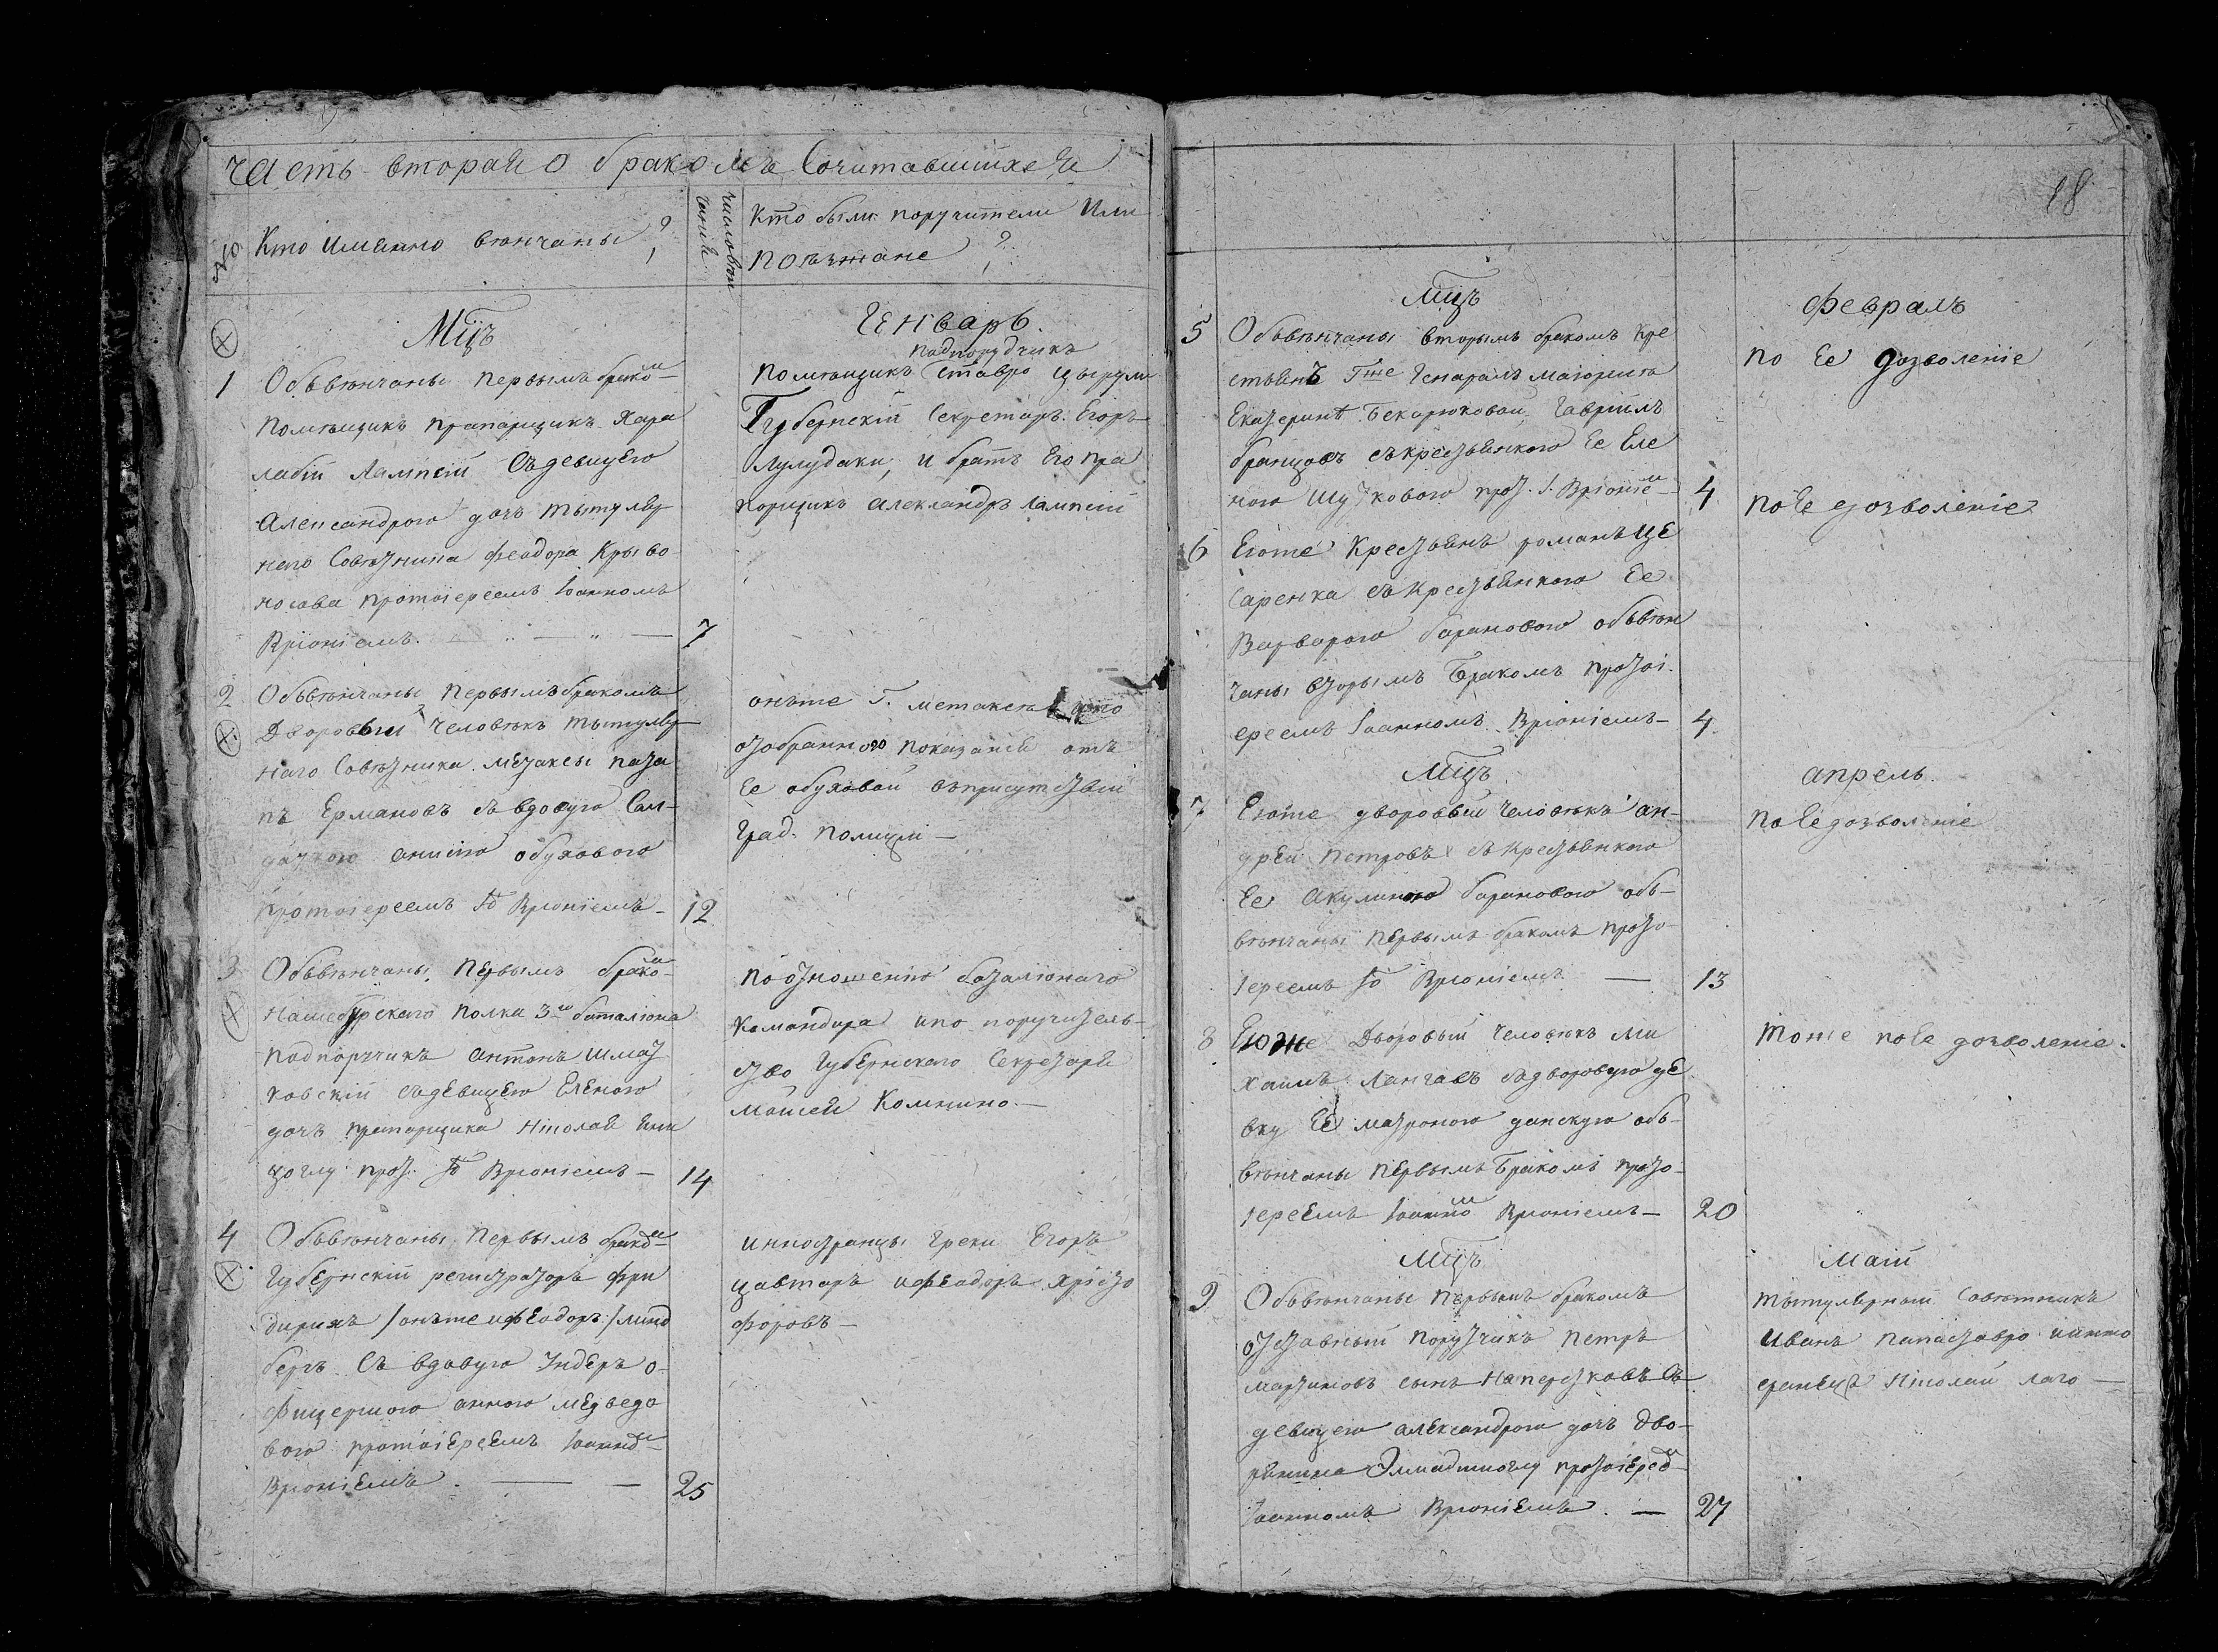 Часть вторая о бракомъ Сочитавшихся
№
Кто имянно венчаны?
число вен
чания
Кто были поручители или
поезжане?
Мцъ
Генварь.
1
Обьвѣнчаны первымъ брако-м
помѣщикъ прапорщикъ Хара
лабій Лампсій Съ девицею
Александрою дочь тытуляр
наго Совѣтника Феодора Криво
носова протоіереемъ Іоанномъ
Вріоніемъ.
7
падпорудчикъ
помѣщикъ Ставро Цырули
Губернскій Секретарь Егоръ
Лулудаки, и братъ Его пра
порщикъ Александръ Лампсій
2
Обьвѣнчаны первымъ бракомъ
Дворовый человѣкъ тытуляр
наго Совѣтника Метаксы пата
пъ Ермановъ съ вдовую Сол-
даткою анисію обухового
протоіереемъ Іо Вріоніемъ-
12
онъже Г. метакса
отобранного показания отъ
Ее обуховой въприсутствіи
град. полиціи -
3
Обьвѣнчаны первымъ брако-м
Нашебурского полка 3го баталіона
падпорутчикъ антонъ шмат
ковскій съдевицею Еленою
дочь прапорщика Ніколая
прот. Іо Вріоніемъ -
14
по отношенію баталіонаго
командира и по поручитель-
ству Губернского Секретаря
моисей Комнино. -
4
Обьвѣнчаны первымъ брако-м
Губернскій регистраторъ фри
дирихъ /онъже и Феодоръ/ линд
бергъ Съ вдовую Ундеръ о-
фицершою анною медведо
вою протоіереемъ Іоанно-м
Вріоніемъ. -
25
инностранцы греки Егоръ
цавтаръ и феодоръ хрісто
форовъ -
18
Мцъ
Февраль
5
Обьвѣнчаны вторымъ бракомъ кре
стьянъ Гже Генаралъ маюрша
Екатерине Бекарюковай, Гавріилъ
бранцовъ съ крестьянкою Ее Еле
ною Шутковою прот. І. Вріоніе-м
4
по Ее дозволеніе
6
Еюже Крестьянъ романъ це
саренка съ крестьянкою Ее
Варварою барановою обьвен
чаны вторымъ Бракомъ протоі.
ереемъ Іоанномъ Вріоніемъ-
4
по Ее дозволеніе
Мцъ
апрель.
7
Еюже дворовый человѣкъ ан-
дрей петровъ съ крестьянкою
Ее Акулиною барановою объ-
вѣнчаны первымъ бракомъ прото-
іереемъ Іо Вріоніемъ -
13
по Ее дозволеніе
8
Еюже Дворовый человѣкъ ми
хаилъ Лангавъ съдворовую де
вку Ее матроною данскую объ-
вѣнчаны первымъ Бракомъ прото-
іереемъ Іоанно-м Вріоніемъ-
20
тоже по Ее дозволеніе.
Мцъ
маій
9
Обьвѣнчаны первымъ бракомъ
отставный порутчикъ петръ
мартиновъ сынъ Наперстковъ Съ
девицею александрою дочь дво-
рянина протоіерео-м
Іоанномъ Вріоніемъ. -
27
тытулярный Совѣтникъ
иванъ папаставро и инно
странецъ Ніколай лаго -